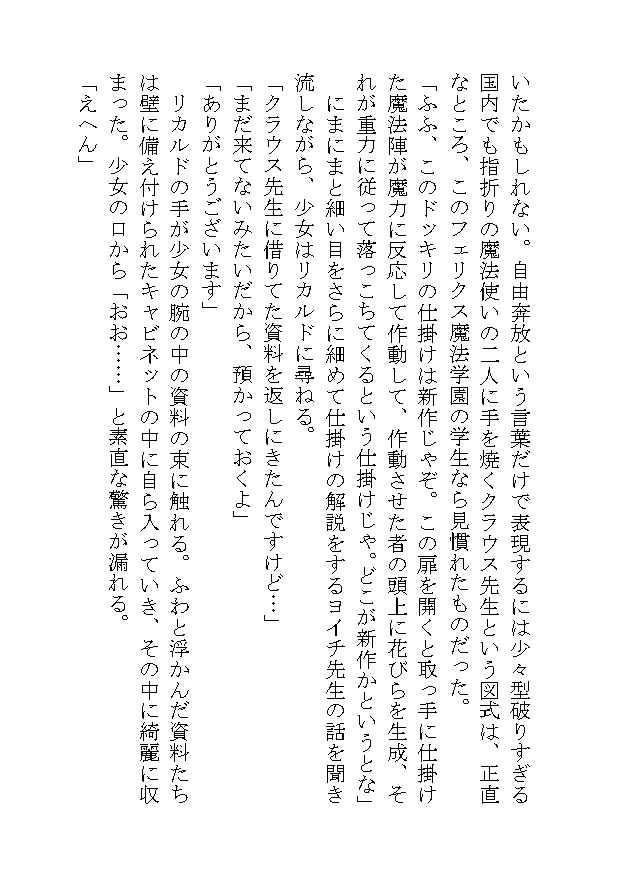 いたかもしれない。自由奔放という言葉だけで表現するには少々型破りすぎる
国内でも指折りの魔法使いの二人に手を焼くクラウス先生という図式は、正直
なところ、このフェリクス魔法学園の学生なら見慣れたものだった。
「ふふ、このドッキリの仕掛けは新作じゃぞ。この扉を開くと取っ手に仕掛け
た魔法陣が魔力に反応して作動して、作動させた者の頭上に花びらを生成、そ
れが重力に従って落っこちてくるという仕掛けじゃ。どこが新作かというとな」
　にまにまと細い目をさらに細めて仕掛けの解説をするヨイチ先生の話を聞き
流しながら、少女はリカルドに尋ねる。
「クラウス先生に借りてた資料を返しにきたんですけど…」
「まだ来てないみたいだから、預かっておくよ」
「ありがとうございます」
　リカルドの手が少女の腕の中の資料の束に触れる。ふわと浮かんだ資料たち
は壁に備え付けられたキャビネットの中に自ら入っていき、その中に綺麗に収
まった。少女の口から「おお……」と素直な驚きが漏れる。
「えへん」